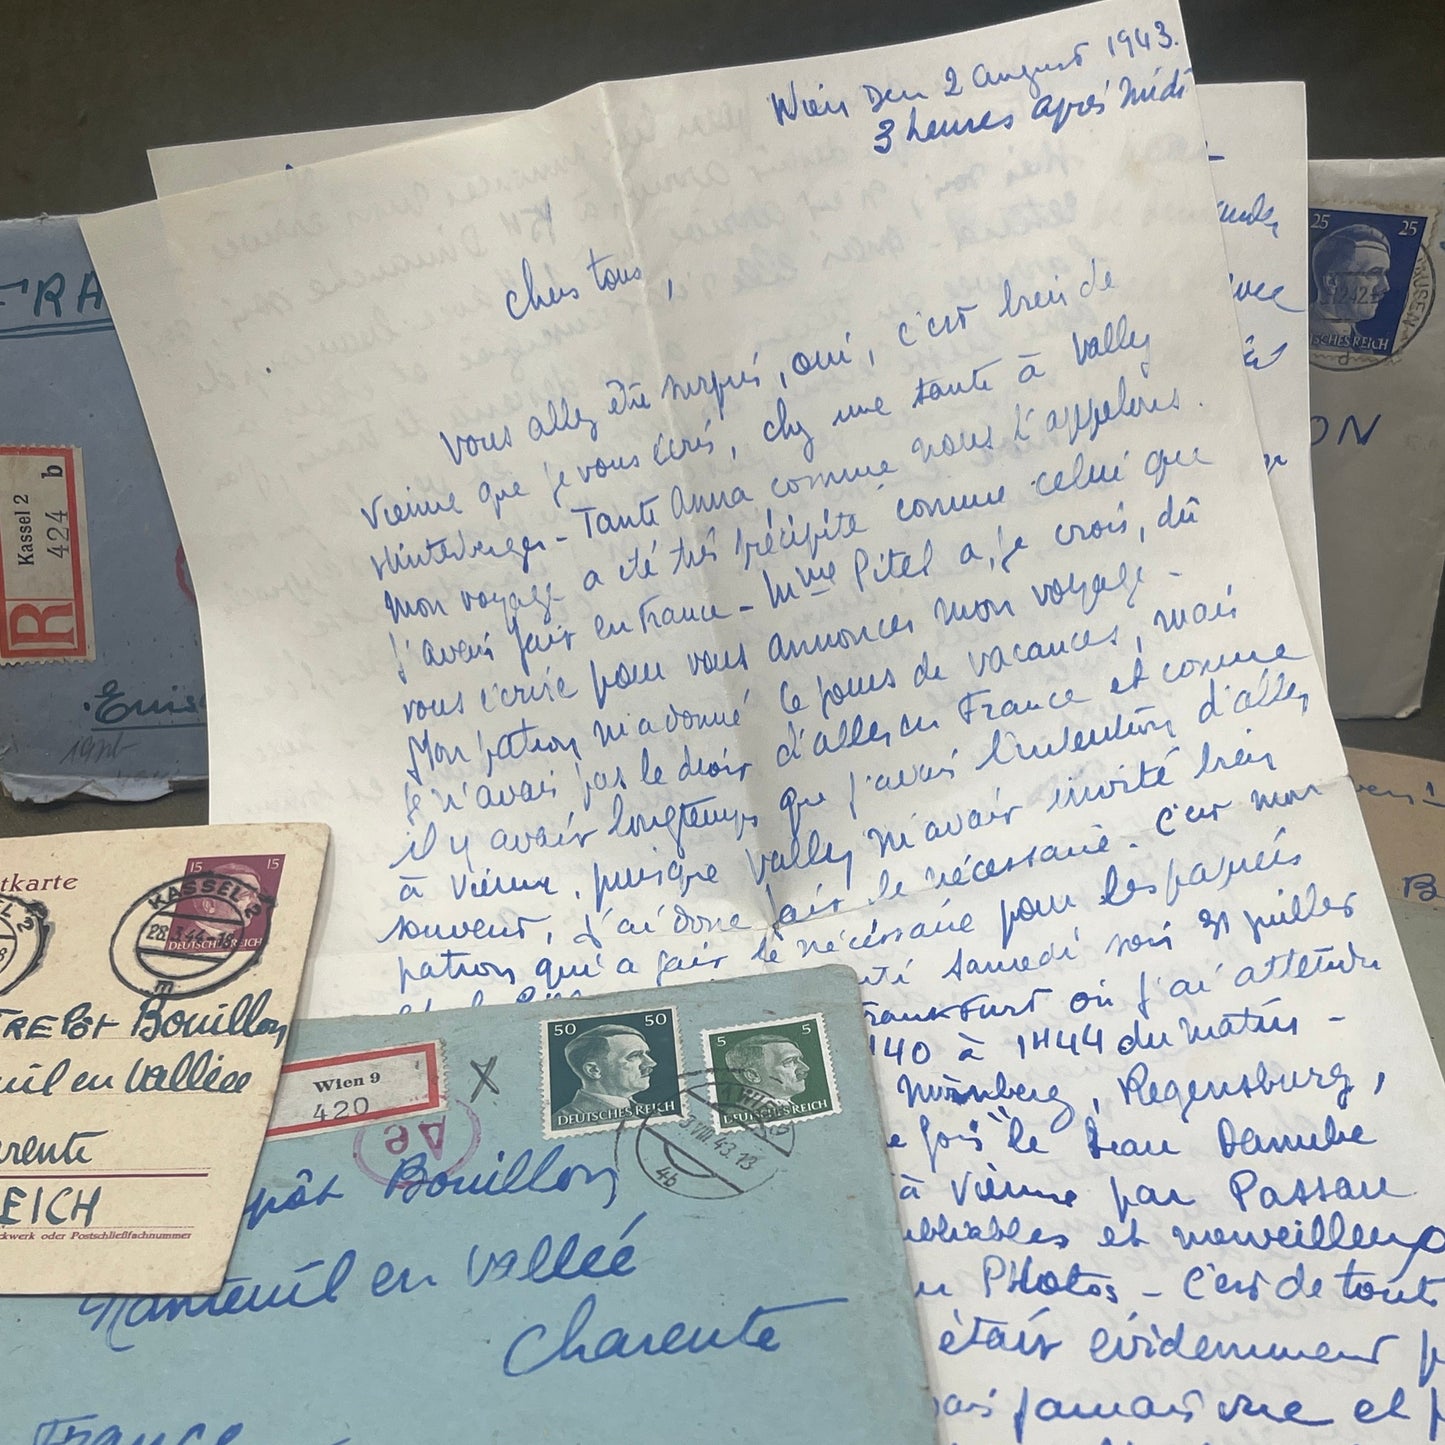 Wien Den 2 August 1943.
3 heures après Midi
chers tous,
Vous allez être surpris, oui, c'est bien de
Vienne que je vous écris, chez une tante à Vally
Hinterberger - Tante Anna comme nous l'appelons.
Mon voyage a été très précipité comme celui que
j'avais fait en France - Mme Pitel a, je crois, dû
vous écrire pour vous annoncer mon voyage -
Mon patron m'a donné le jours de vacances, mais
je n'avais pas le droit d'aller en France et comme
il y avait longtemps que j'avais l'intention d'aller
à Vienne, puisque Vally m'avait invité bien
souvent, j'ai donc fait le nécessaire. C'est mon
patron qui a fait le nécessaire pour les papiers
té samedi soir 31 juillet
rankfurt où j'ai attendu
140 à 1H44 du matin -
Nürnberg, Regensburg,
e fois le beau Danube
à Vienne par Passau
ubliables et merveilleux
PHotos - C'est de toute
était évidemment p
ais jamais vue et p
FRA
Kassel 2
424
b
R
25 25
DEUTSCHES REICH
ON
B
tkarte
15 15
DEUTSCHES REICH
KASSEL 2
28.3.44.-18
m
TREPôt Bouillon
uil en Vallée
rente
EICH
ckwerk oder Postschließfachnummer
Wien 9
420
X
Ae
50 50
DEUTSCHES REICH
5 5
DEUTSCHES REICH
3.VIII.43.13
4b
pôt Bouillon
Nanteuil en Vallée
Charente
France